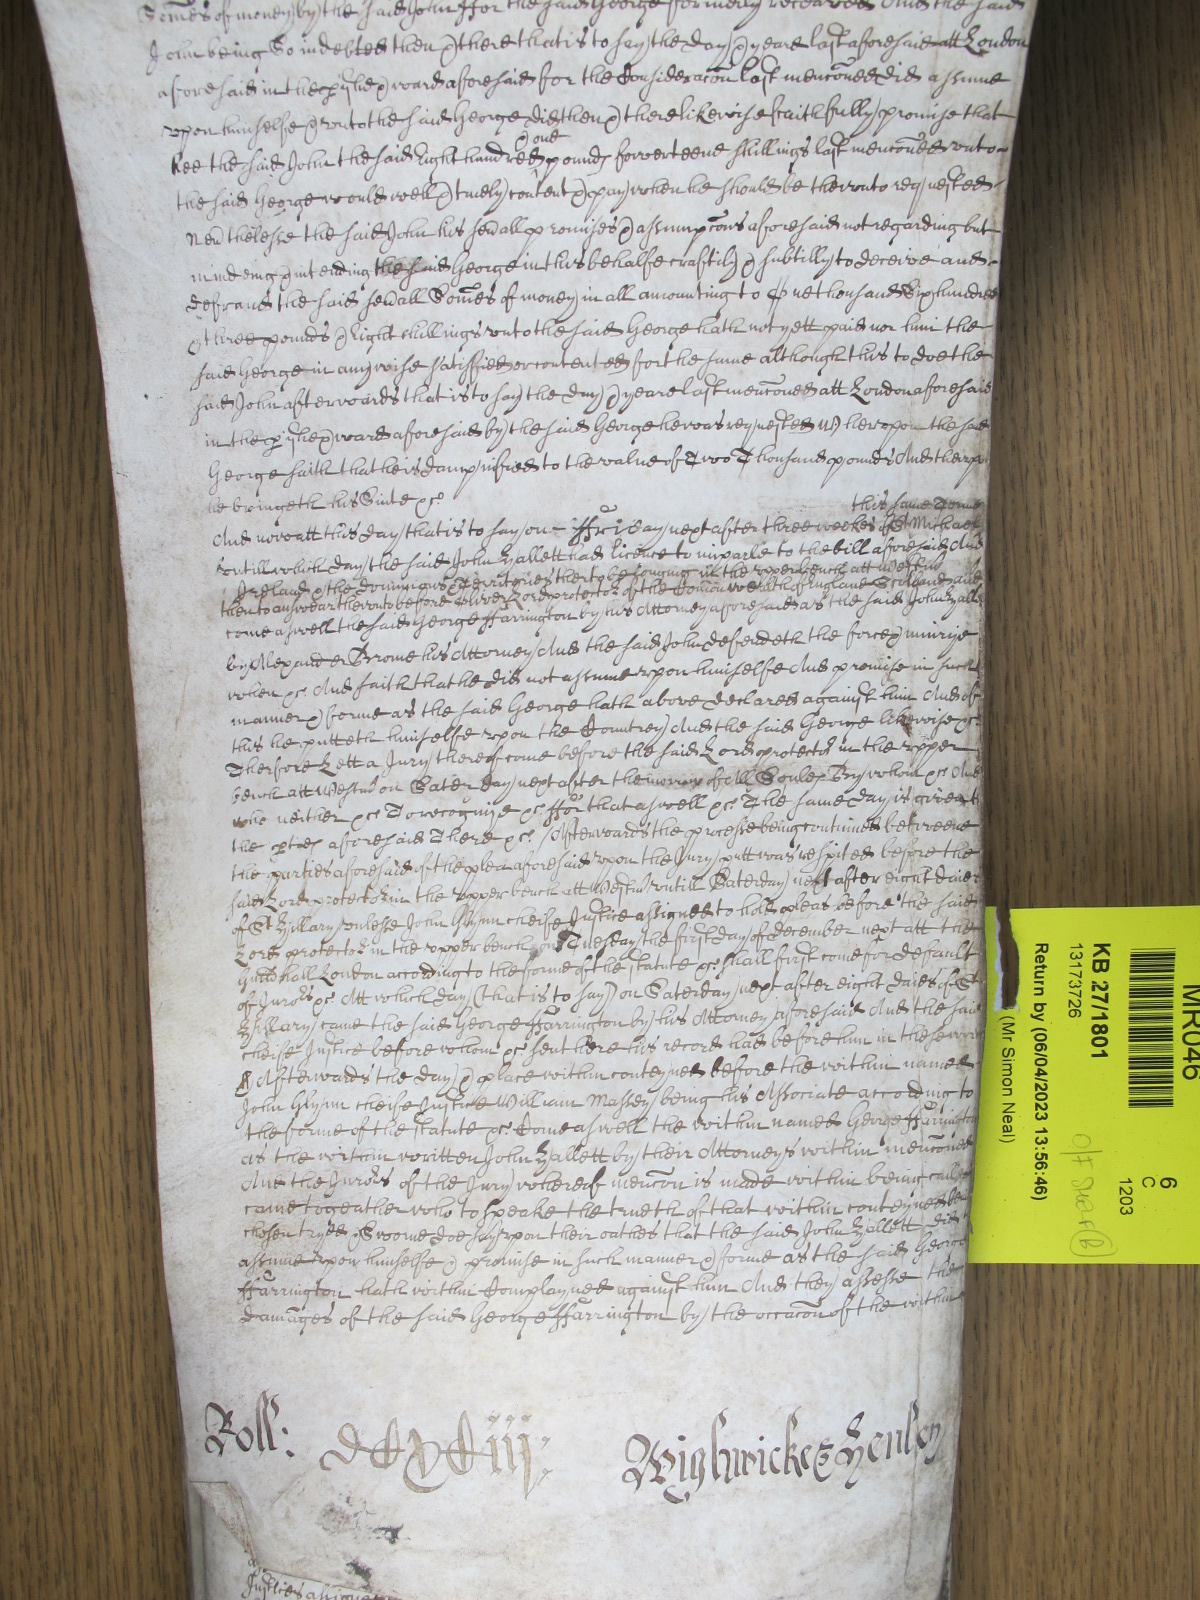 Somes of money by the said John ffor the said George formerly receaved And the said
John being So indebted then & there that is to say the day & yeare last aforesaid att London
aforesaid in the pish & ward aforesaid for the Consideracon last menconed did assume
upon himselfe & unto the said George did then & there likewise faithfully promise that
hee the said John the said Eight hundred & one pounds fowerteene shillings last menconed unto
the said George would well & truely content & pay when he should be thereunto requested
Nevthelesse the said John his sevall promises & assumpcons aforesaid not regarding but
mindeing & intending the said George in this behalfe craftily & subtilly to deceive and
defraud the said sevall Somes of money in all amounting to One thousand Six hundred
& three pounds & Eight shillings unto the said George hath not yett paid nor him the
said George in any wise satisfied or contented for the same although this to doe the
said John afterwards that is to say the day & yeare last menconed att London aforesaid
in the pish & ward aforesaid by the said George he was requested Whereupon the said
George saith that he is dampnified to the value of Two Thousand pounds And thereupon
he bringeth his Suite &c
this same Terme
And now att this day that is to say on ffriday next after three weekes of St Michael
untill which day the said John Hallett had licence to imparle to the bill aforesaid And
then to answear thereunto before Oliver Lord protector of the Comonwealth of England Scotland and
Ireland & the Dominions & Territories thereto belonging in the upper bench att Westm
come aswell the said George Harrington by his Attorney aforesaid as the said John Hallett
by Alexander Brome his Attorney And the said John defendeth the force & iniurie
when &c And saith that he did not assume upon himselfe And promise in such
manner & forme as the said George hath above declared against him And of
this he putteth himselfe upon the Countrey And the said George likewise &c
Therfore Lett a Jury thereof come before the said Lord protector in the upper
bench att Westm on Saterday next after the morrow of All Soules By whom &c And
who neither &c To recognize &c ffor that aswell &c The same day is given to
the pties aforesaid There &c Afterwards the processe being continued betweene
the parties aforesaid of the plea aforesaid upon the Jury putt was respited before the
said Lord protector in the upper bench att Westm untill Saterday next after eight daies
of St Hillary unlesse John Glynn cheife Justice assigned to hold pleas before the said
Lord protector in the upper bench on Tuesday the first day of December next att the
Guildhall London according to the forme of the statute &c shall first come for default
of Jurors &c Att which day (that is to say) on Saterday next after eight daies of St
Hillary came the said George Harrington by his Attorney aforesaid And the said
cheife Justice before whom &c sent here his record had before him in these words
Afterwards the day & place within conteyned before the within named
John Glynn cheife Justice William Massey being his Associate according to
the forme of the statute &c Come aswell the within named George Harrington
as the within written John Hallett by their Attorneys within menconed
And the Jurors of the Jury whereof mencon is made within being called
came together who to speake the trueth of that within conteyned being
chosen tryed & Sworne doe say upon their oathes that the said John Hallett did
assume upon himselfe & promise in such manner & forme as the said George
Harrington hath within Complayned against him And they assesse the
damages of the said George Harrington by the occacon of the within
Roll: DCXCiij;
Wightwicke & Henley
Justices assigned
MR046
6
C
1203
KB 27/1801
13173726
Return by (06/04/2023 13:56:46)
(Mr Simon Neal)